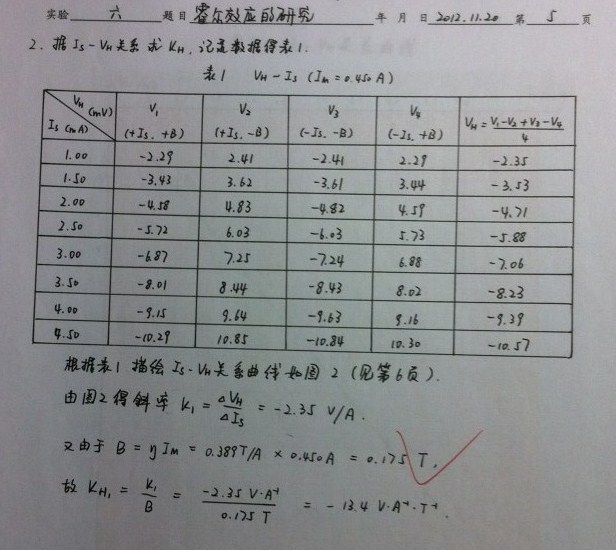 实验 六 题目 霍尔效应的研究 年 月 日 2012.11.20 第 5 页
2. 据 Is-VH关系 求 KH, 记录数据得表1.
表1 VH-Is (IM=0.450A)
VH (mV) V1 V2 V3 V4 VH = (V1-V2+V3-V4)/4
Is (mA) (+Is, +B) (+Is, -B) (-Is, -B) (-Is, +B)
1.00 -2.29 2.41 -2.41 2.29 -2.35
1.50 -3.43 3.62 -3.61 3.44 -3.53
2.00 -4.58 4.83 -4.82 4.59 -4.71
2.50 -5.72 6.03 -6.03 5.73 -5.88
3.00 -6.87 7.25 -7.24 6.88 -7.06
3.50 -8.01 8.44 -8.43 8.02 -8.23
4.00 -9.15 9.64 -9.63 9.16 -9.39
4.50 -10.29 10.85 -10.84 10.30 -10.57
根据表1 描绘 Is-VH关系曲线如图 2 (见第6页).
由图2得斜率 K1 = ΔVH/ΔIs = -2.35 V/A.
又由于 B = ηIM = 0.389T/A × 0.450A = 0.175 T,
故 KH1 = K1/B = -2.35 V·A⁻¹/0.175 T = -13.4 V·A⁻¹·T⁻¹.